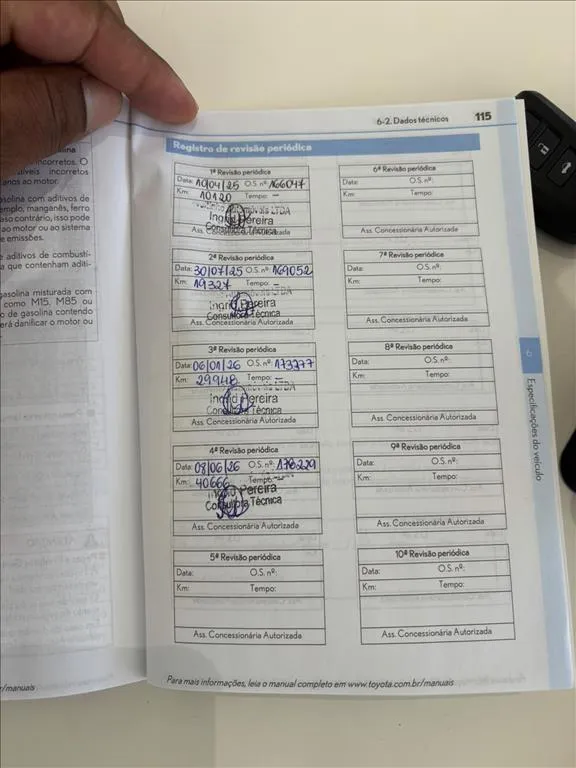 ina
incorretos. O
tíveis incorretos
anos ao motor.
solina com aditivos de
emplo, manganês, ferro
aso contrário, isso pode
ao motor ou ao sistema
e emissões.
e aditivos de combustí-
a que contenham aditi-
gasolina misturada com
como M15, M85 ou
o de gasolina contendo
erá danificar o motor ou
r/manuais
6-2. Dados técnicos 115
Registro de revisão periódica
1ª Revisão periódica
Data: 10/04/25 O.S. nº: 166047
Km: 10120 Tempo: –
Ingrid Pereira
Consultora Técnica
Ass. Concessionária Autorizada
2ª Revisão periódica
Data: 30/07/25 O.S. nº: 169052
Km: 19327 Tempo: –
Ingrid Pereira
Consultora Técnica
Ass. Concessionária Autorizada
3ª Revisão periódica
Data: 06/01/26 O.S. nº: 173277
Km: 29948 Tempo: –
Ingrid Pereira
Consultora Técnica
Ass. Concessionária Autorizada
4ª Revisão periódica
Data: 08/06/26 O.S. nº: 178229
Km: 40666 Tempo: –
Ingrid Pereira
Consultora Técnica
Ass. Concessionária Autorizada
5ª Revisão periódica
Data: O.S. nº:
Km: Tempo:
Ass. Concessionária Autorizada
6ª Revisão periódica
Data: O.S. nº:
Km: Tempo:
Ass. Concessionária Autorizada
7ª Revisão periódica
Data: O.S. nº:
Km: Tempo:
Ass. Concessionária Autorizada
8ª Revisão periódica
Data: O.S. nº:
Km: Tempo:
Ass. Concessionária Autorizada
9ª Revisão periódica
Data: O.S. nº:
Km: Tempo:
Ass. Concessionária Autorizada
10ª Revisão periódica
Data: O.S. nº:
Km: Tempo:
Ass. Concessionária Autorizada
6
Especificações do veículo
Para mais informações, leia o manual completo em www.toyota.com.br/manuais